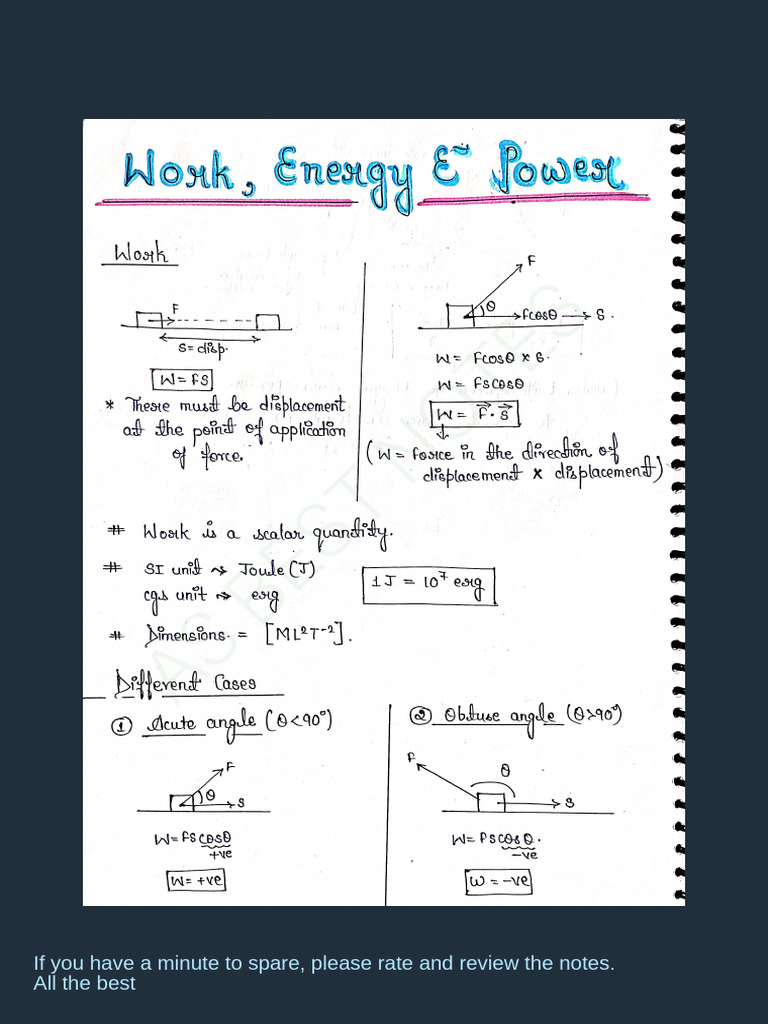 Work, Energy & Power
Work
F
S = disp.
W = FS
* There must be displacement
at the point of application
of force.
F
θ
Fcosθ → S.
W = Fcosθ × S.
W = FScosθ
W = F⃗ . S⃗
(W = force in the direction of
displacement × displacement)
# Work is a scalar quantity.
# SI unit ⇝ Joule (J)
cgs unit ⇝ erg
1 J = 10⁷ erg
# Dimensions. = [ML²T⁻²].
Different Cases
① Acute angle (θ<90°)
F
θ
S
W = FScosθ
+ve
W = +ve
② Obtuse angle (θ>90°)
F
θ
S
W = FScosθ.
-ve
W = -ve
AS BEST NOTES
If you have a minute to spare, please rate and review the notes.
All the best